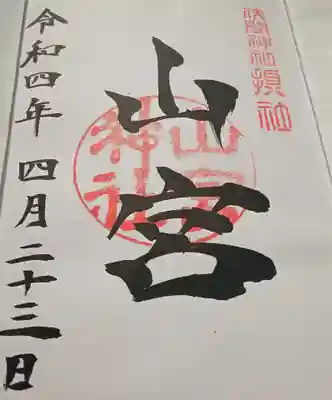 浅間神社摂社
山宮
山宮
神社
令和四年 四月二十三日